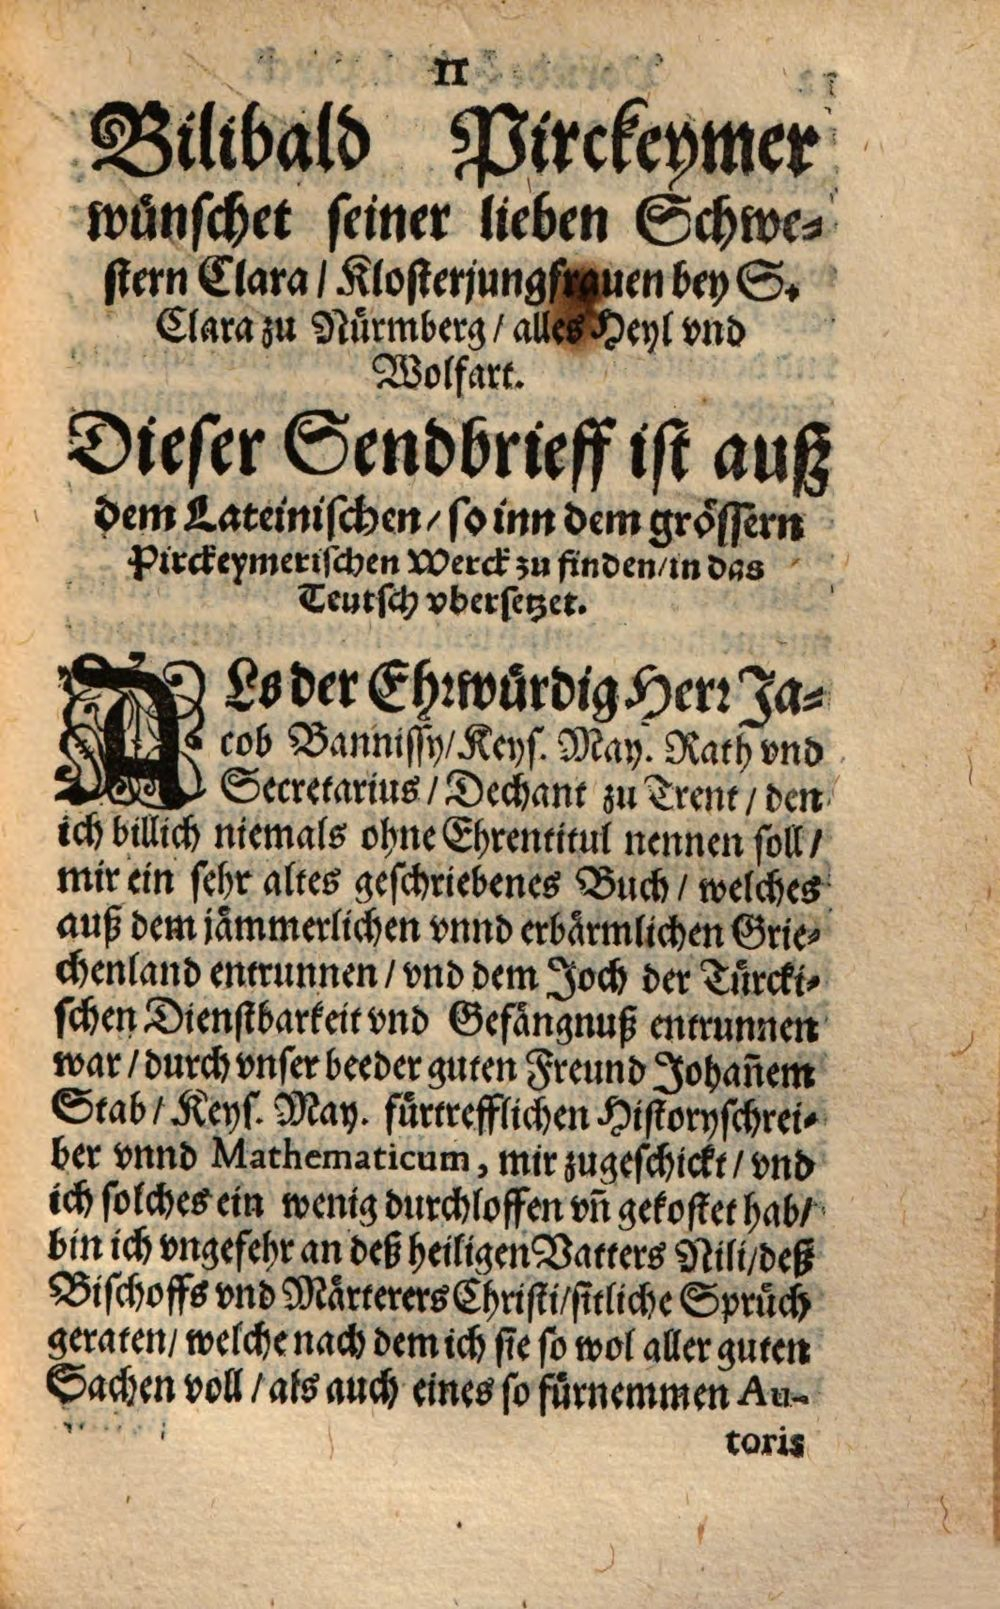 11
Bilibald Pirckeymer
wünschet seiner lieben Schwe-
stern Clara / Klosterjungfrauen bey S.
Clara zu Nürmberg / alles Heyl vnd
Wolfart.
Dieser Sendbrieff ist auß
dem Lateinischen / so inn dem grössern
Pirckeymerischen Werck zu finden / in das
Teutsch vbersetzet.
ALs der Ehrwürdig Herr Ja-
cob Bannissy / Keys. May. Rath vnd
Secretarius / Dechant zu Trent / den
ich billich niemals ohne Ehrentitul nennen soll /
mir ein sehr altes geschriebenes Buch / welches
auß dem jämmerlichen vnnd erbärmlichen Grie-
chenland entrunnen / vnd dem Joch der Türcki-
schen Dienstbarkeit vnd Gefängnuß entrunnen
war / durch vnser beeder guten Freund Johañem
Stab / Keys. May. fürtrefflichen Historyschrei-
ber vnnd Mathematicum, mir zugeschickt / vnd
ich solches ein wenig durchloffen vñ gekostet hab /
bin ich vngefehr an deß heiligen Vatters Nili / deß
Bischoffs vnd Märterers Christi / sitliche Sprüch
geraten / welche nach dem ich sie so wol aller guten
Sachen voll / als auch eines so fürnemmen Au-
toris